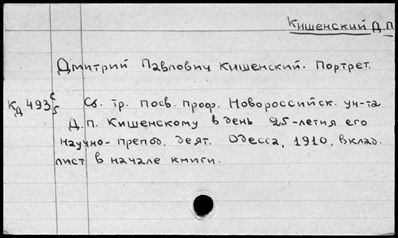 Кишенский Д.П.
Дмитрий Павлович Кишенский. Портрет.
Кд 493 с/5 Сб. тр. посв. проф. Новороссийск. ун-та
Д.П. Кишенскому в день 25-летия его
научно-препод. деят. Одесса, 1910, вклад.
лист в начале книги.